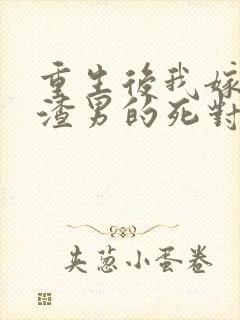 重生後我嫁
渣男的死對
夾蔥小蛋卷